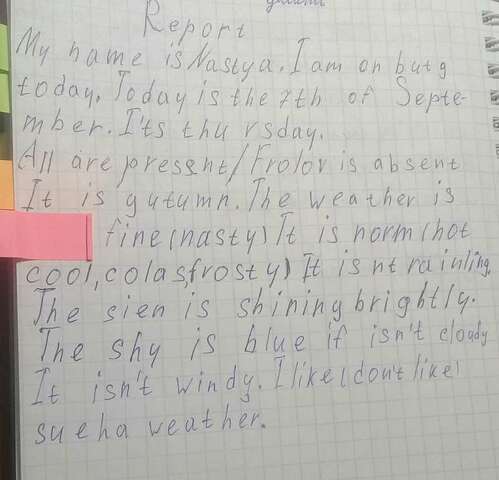 Report
My name is Nastya. I am on buty
today. Today is the 7th of Septe-
mber. I'ts thursday.
All are pressnt/Frolov is absent
It is gutumn. The weather is
fine(nasty) It is norm(hot
cool, colas, frosty) It isnt rainling.
The sien is shining brightly.
The shy is blue if isn't cloudy
It isn't windy. I like(don't like)
sueha weather.